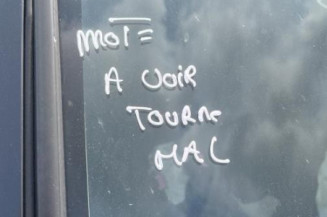 MOT =
A VOIR
TOURNE
MAL